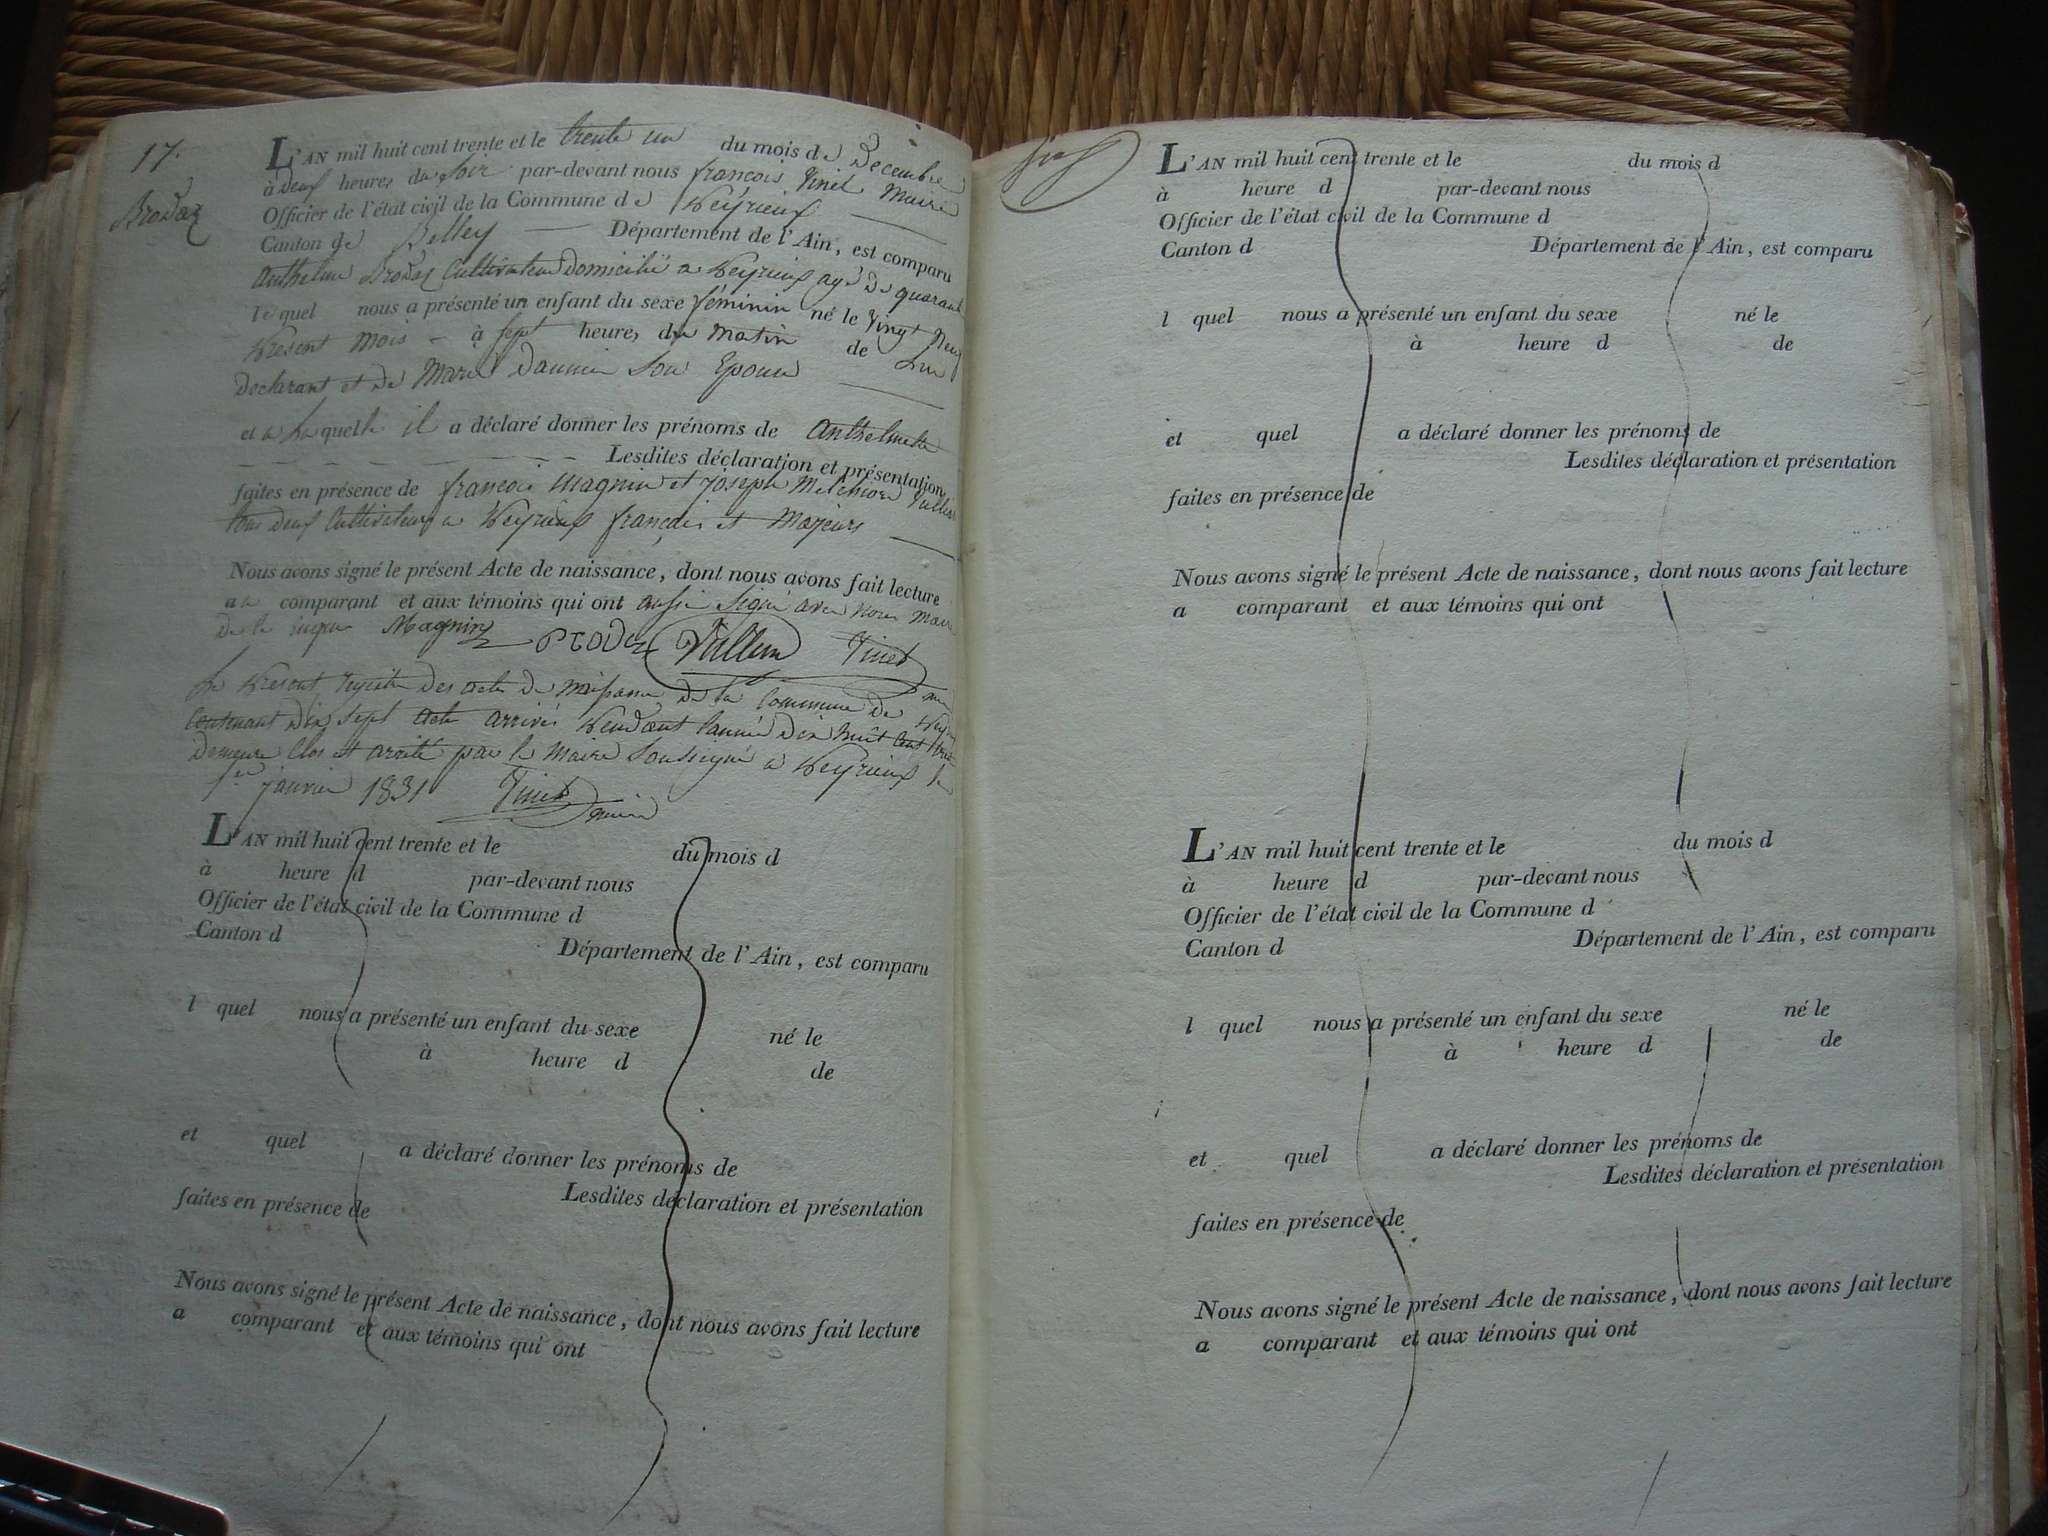 17.
Brodaz
L'AN mil huit cent trente et le trente un du mois de Decembre
à deux heures du soir par-devant nous francois Vinet Maire
Officier de l'état civil de la Commune de Peyrieux
Canton de Belley Département de l'Ain, est comparu
Anthelme Brodaz Cultivateur domicilié a Peyrieux agé de quarante
le quel nous a présenté un enfant du sexe féminin né le vingt neuf
present mois - à sept heures du matin de lui
declarant et de Marie son Epouse
et a laquelle il a déclaré donner les prénoms de Anthelmette
Lesdites déclaration et présentation
faites en présence de francois Magnin et joseph Melchior
tous deux Cultivateurs a Peyrieux français et Majeurs
Nous avons signé le présent Acte de naissance, dont nous avons fait lecture
au comparant et aux témoins qui ont aussi signé avec nous maire
de le Magnin Brodaz Vinet
Le present registre des actes de naissance de la Commune de
Contenant dix sept actes arrivés pendant l'année dix huit cent trente
demeure Clos et arrêté par le Maire Soussigné a Peyrieux le
1er janvier 1831 Vinet maire
L'AN mil huit cent trente et le du mois d
à heure d par-devant nous
Officier de l'état civil de la Commune d
Canton d
Département de l'Ain, est comparu
l quel nous a présenté un enfant du sexe né le
à heure d de
et quel a déclaré donner les prénoms de
Lesdites déclaration et présentation
faites en présence de
Nous avons signé le présent Acte de naissance, dont nous avons fait lecture
a comparant et aux témoins qui ont
L'AN mil huit cent trente et le du mois d
à heure d par-devant nous
Officier de l'état civil de la Commune d
Canton d Département de l'Ain, est comparu
l quel nous a présenté un enfant du sexe né le
à heure d de
et quel a déclaré donner les prénoms de
Lesdites déclaration et présentation
faites en présence de
Nous avons signé le présent Acte de naissance, dont nous avons fait lecture
a comparant et aux témoins qui ont
L'AN mil huit cent trente et le du mois d
à heure d par-devant nous
Officier de l'état civil de la Commune d
Canton d Département de l'Ain, est comparu
l quel nous a présenté un enfant du sexe né le
à heure d de
et quel a déclaré donner les prénoms de
Lesdites déclaration et présentation
faites en présence de
Nous avons signé le présent Acte de naissance, dont nous avons fait lecture
a comparant et aux témoins qui ont